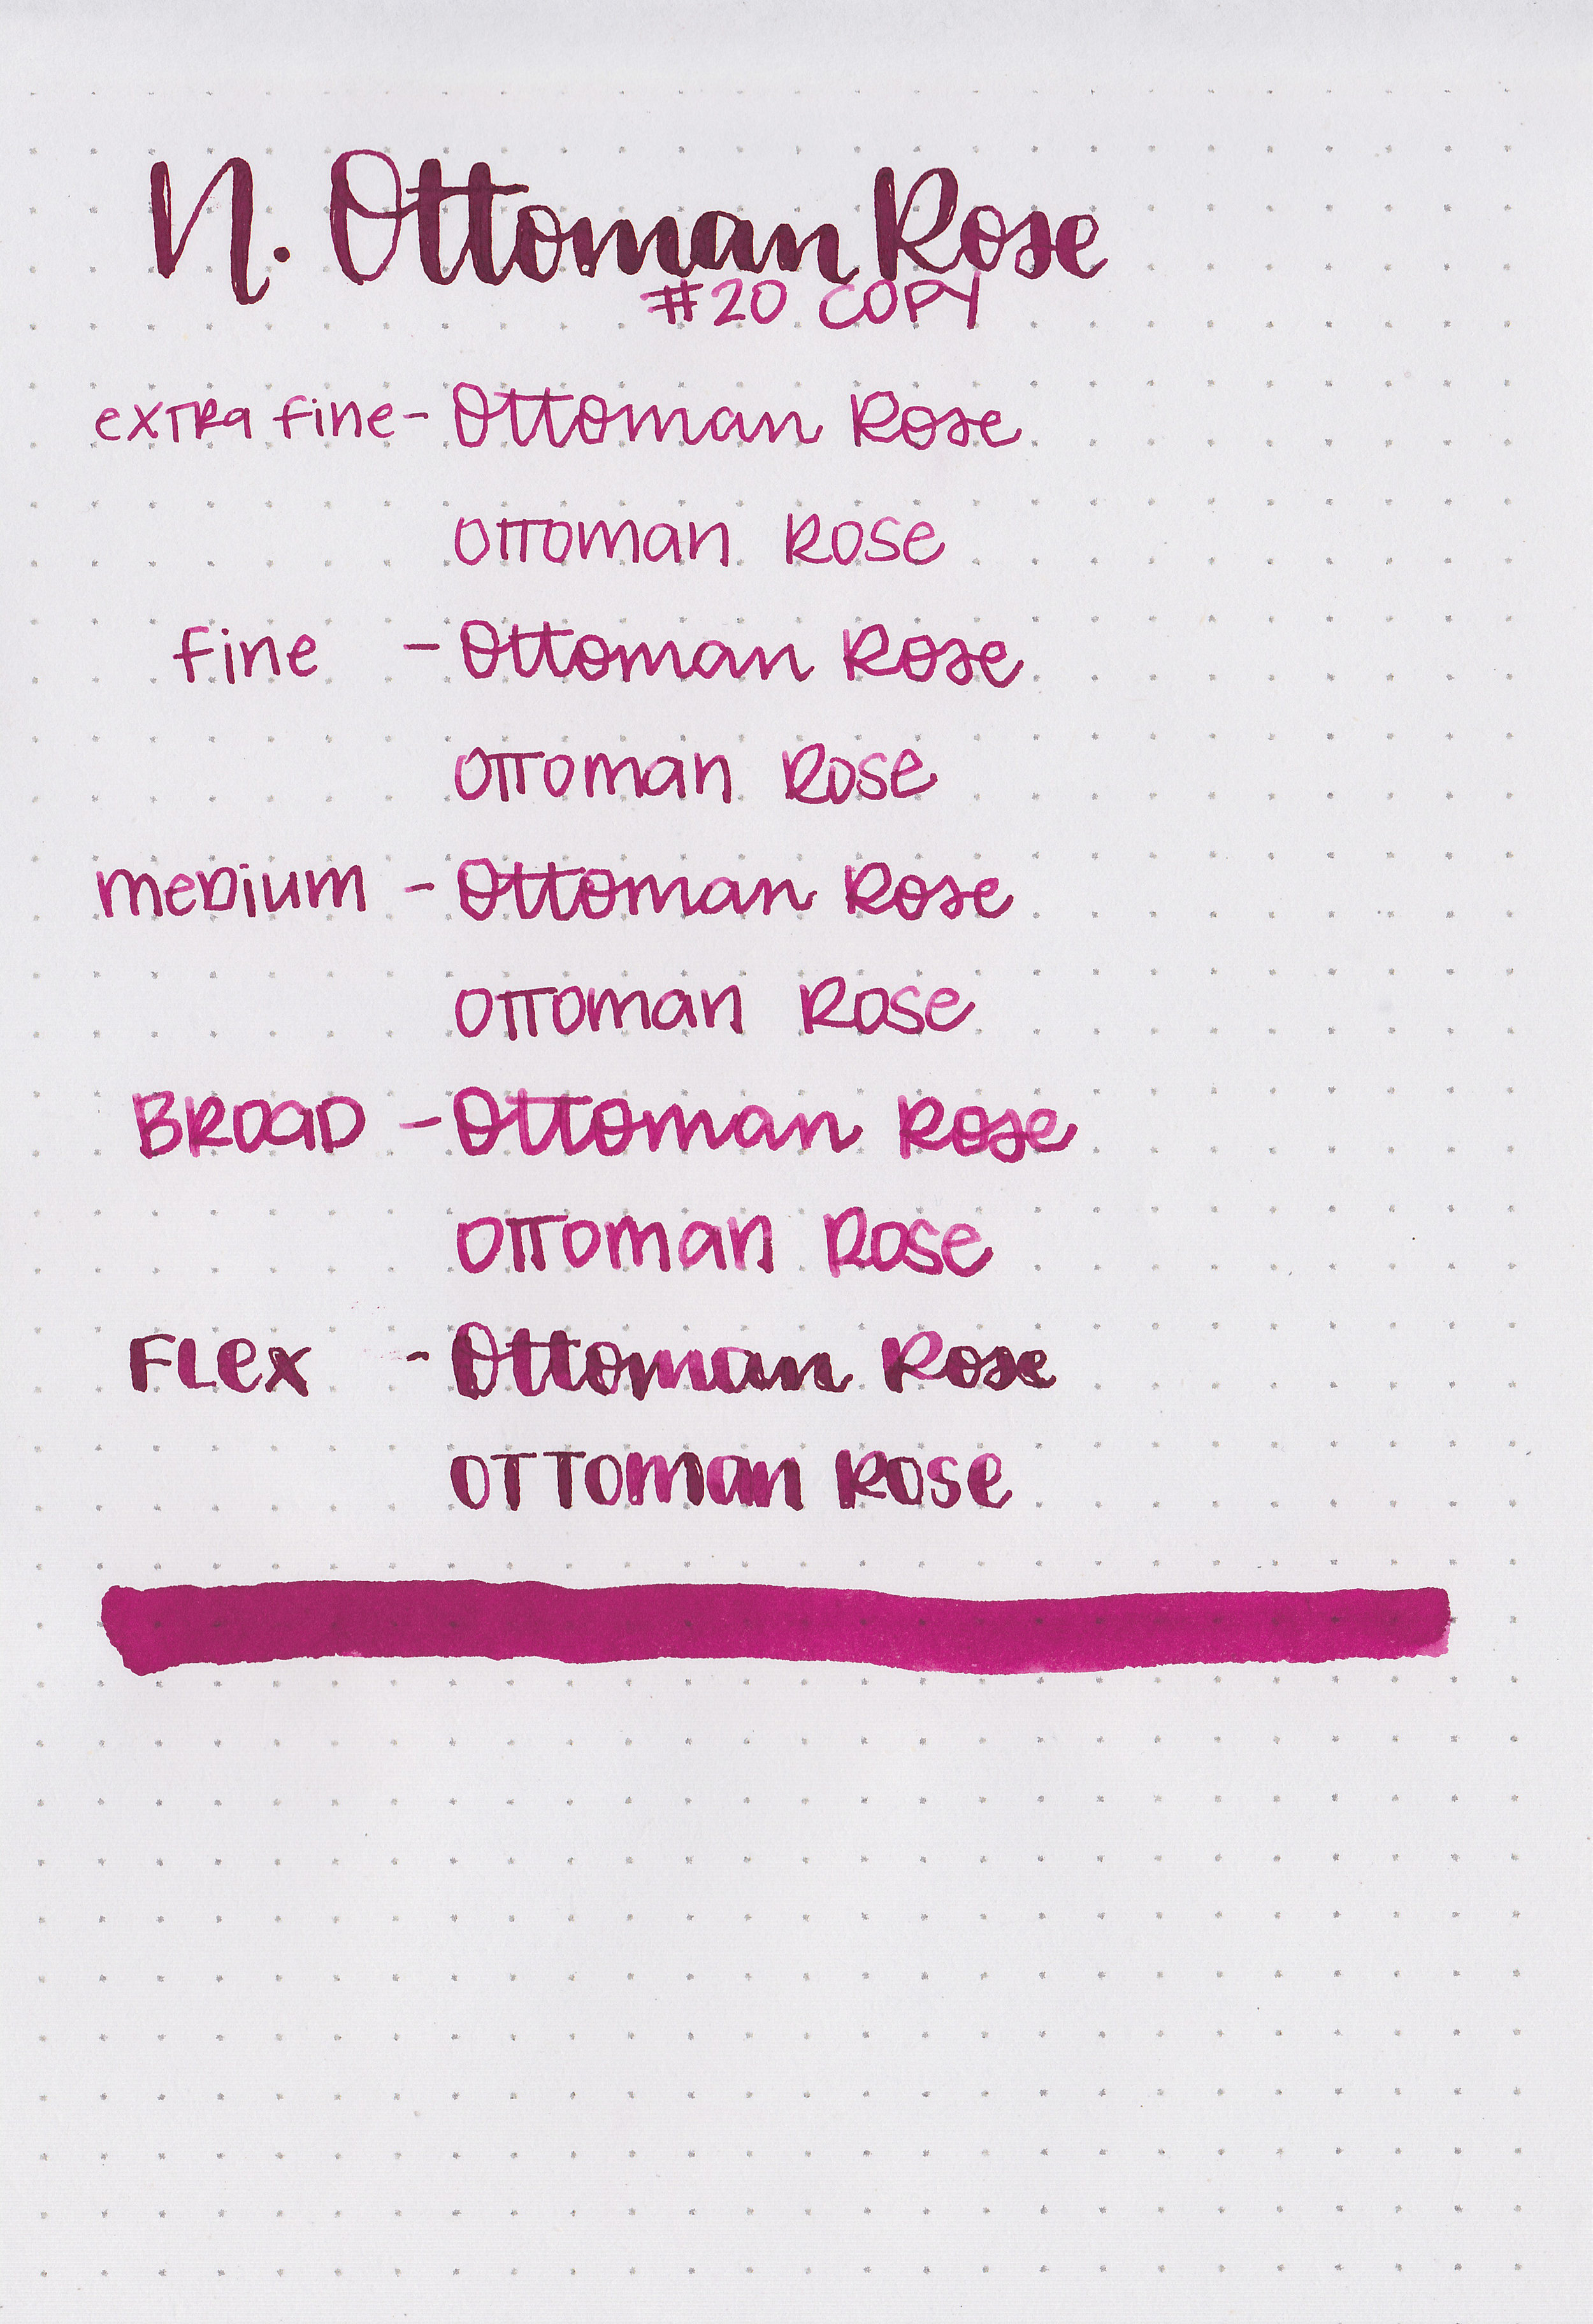 N. Ottoman Rose
#20 COPY
extra fine - Ottoman Rose
Ottoman Rose
fine - Ottoman Rose
Ottoman Rose
medium - Ottoman Rose
Ottoman Rose
BROAD - Ottoman Rose
Ottoman Rose
FLex - Ottoman Rose
OTToman Rose